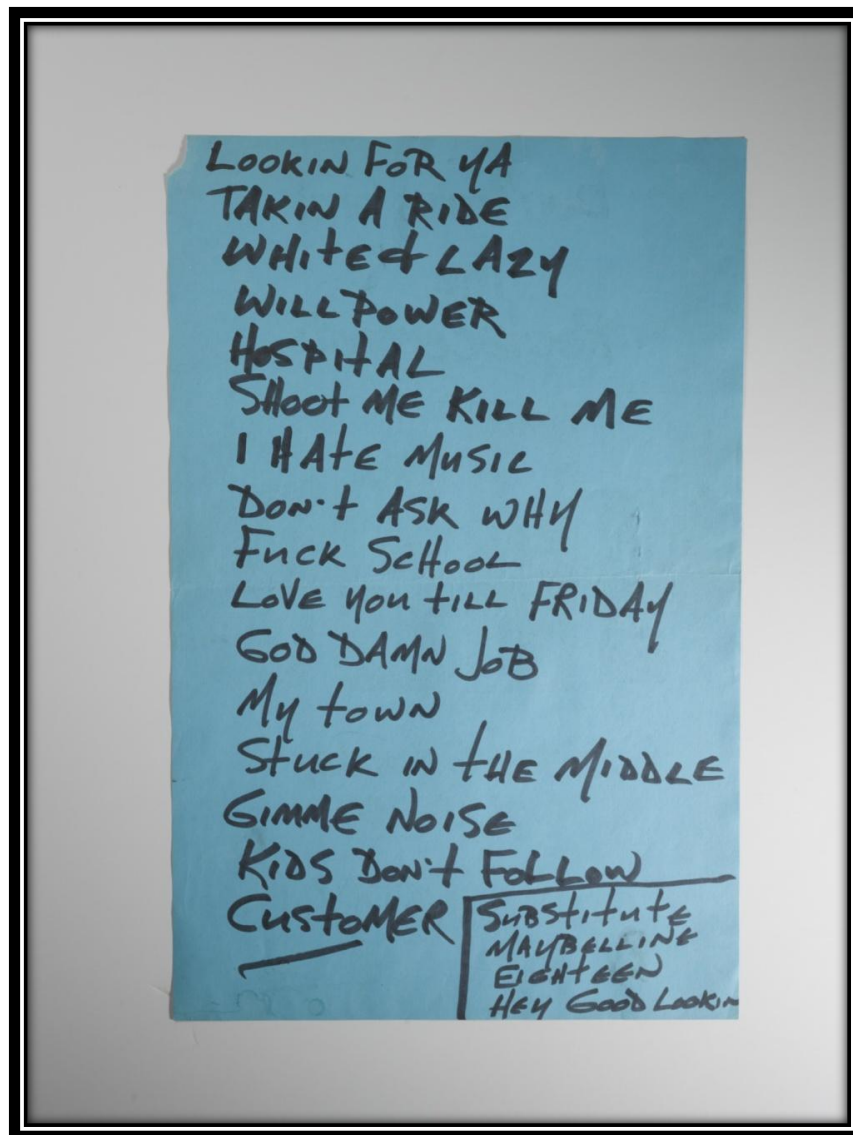 LOOKIN FOR YA
TAKIN A RIDE
WHITE & LAZY
WILLPOWER
HOSPITAL
SHOOT ME KILL ME
I HATE MUSIC
DON'T ASK WHY
FUCK SCHOOL
LOVE YOU TILL FRIDAY
GOD DAMN JOB
MY TOWN
STUCK IN THE MIDDLE
GIMME NOISE
KIDS DON'T FOLLOW
CUSTOMER
SUBSTITUTE
MAYBELLINE
EIGHTEEN
HEY GOOD LOOKIN